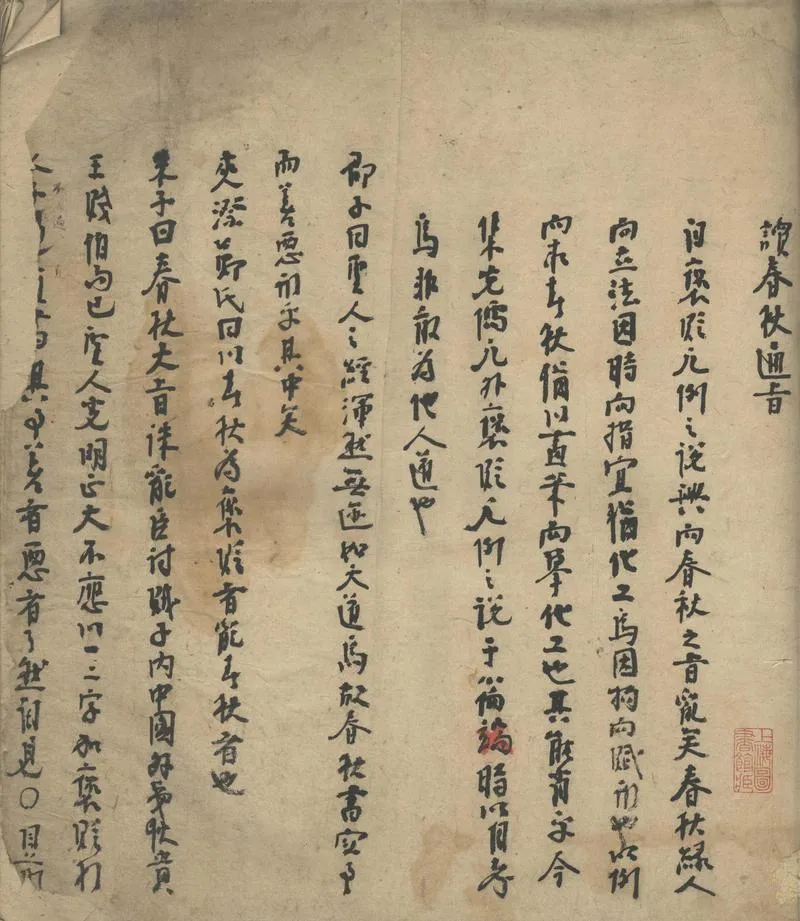 讀春秋通旨
自褒貶凡例之說興而春秋之旨亂矣春秋緣人
而立法因時而措宜猶化工焉因物而賦形也以例
而求春秋猶以畫筆而摹化工也其能肖乎今
集先儒凡外褒貶凡例之說于簡端時以自考
焉非敢為他人道也
邵子曰聖人之經渾然無迹如天道焉故春秋書實事
而善惡形乎其中矣
夾漈鄭氏曰以春秋為褒貶者亂春秋者也
朱子曰春秋大旨誅亂臣討賊子內中國外夷狄貴
王賤伯而已聖人光明正大不應以一二字加褒貶於
人不過直書其事善者惡者了然自見〇目前
上海圖書館藏